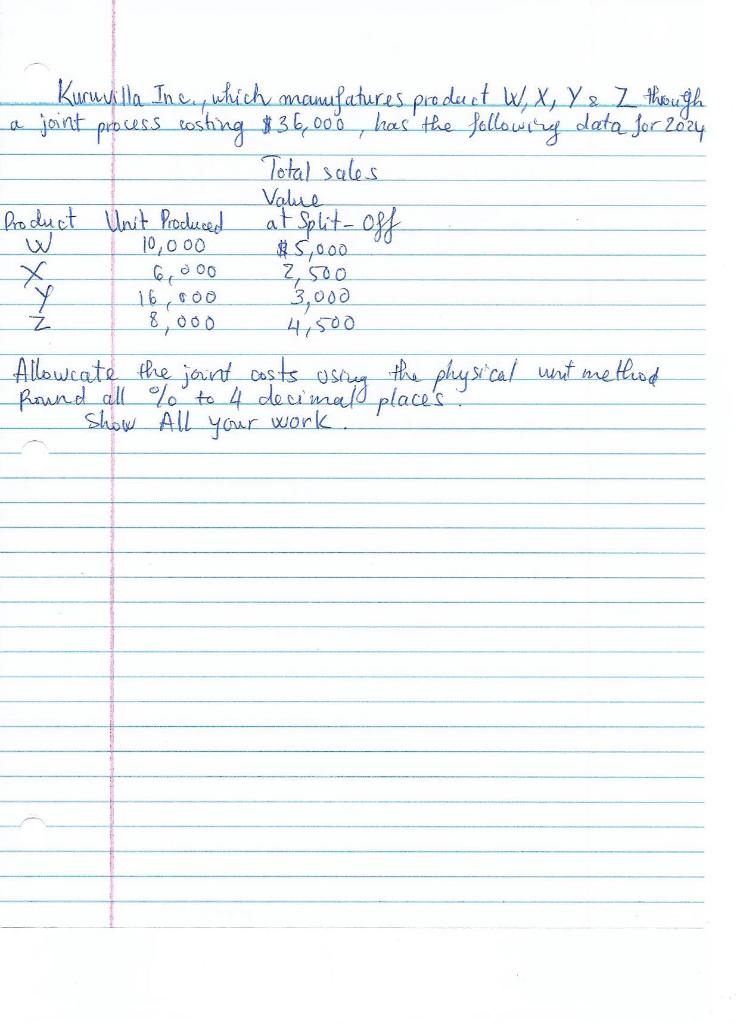 Kuruvilla Inc., which manufatures product W, X, Y & Z though
a joint process costing $36,000, has the following data for 2024
Total sales
Value
Product Unit Produced at Split-Off
W 10,000 $5,000
X 6,000 2,500
Y 16,000 3,000
Z 8,000 4,500
Allowcate the joint costs using the physical unit method
Round all % to 4 decimal places.
Show All your work.